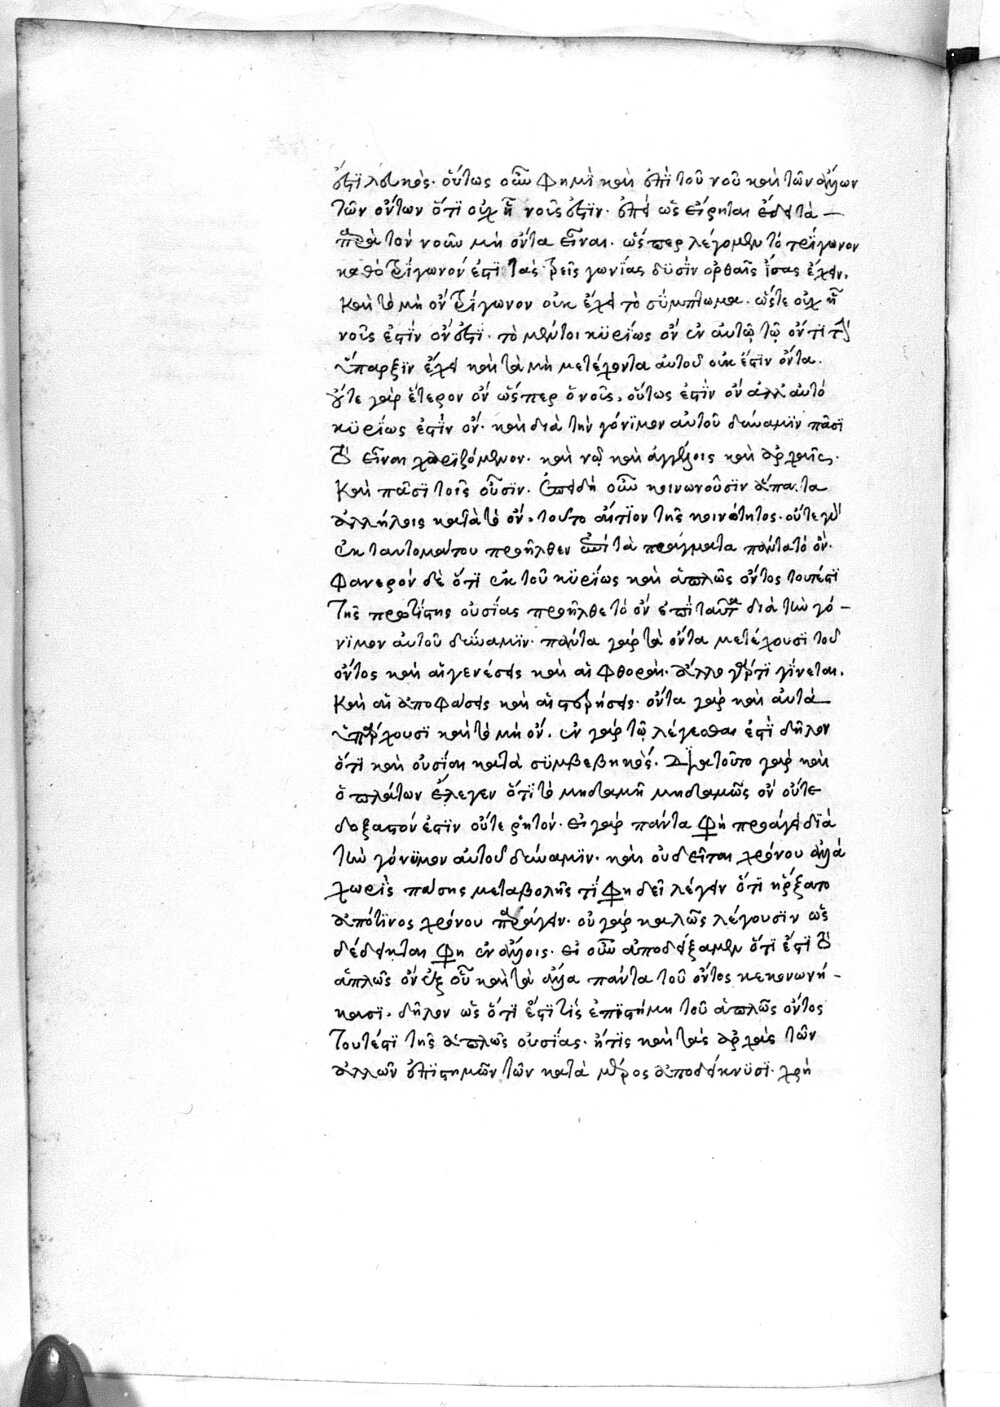 ἐστὶ λευκός. οὕτως οὖν φημὶ καὶ ἐπὶ τοῦ νοῦ καὶ τῶν ἄλλων
τῶν ὄντων ὅτι οὐχ ᾗ νοῦς ἐστίν. ἐπεὶ ὡς εἴρηται ἔδει τὰ
παρὰ τὸν νοῦν μὴ ὄντα εἶναι. ὥσπερ λέγομεν τὸ τρίγωνον
καθὸ τρίγωνόν ἐστι τὰς τρεῖς γωνίας δυσὶν ὀρθαῖς ἴσας ἔχειν.
καὶ τὸ μὴ ὂν τρίγωνον οὐκ ἔχει τὸ σύμπτωμα. ὥστε οὐχ ᾗ
νοῦς ἐστὶν ὄν ἐστι. τὸ μέντοι κυρίως ὂν ἐν αὐτῷ τῷ ὄντι τὴν
ὕπαρξιν ἔχει καὶ τὰ μὴ μετέχοντα αὐτοῦ οὐκ ἔστιν ὄντα.
οὔτε γὰρ ἕτερον ὂν ὥσπερ ὁ νοῦς, οὕτως ἐστὶν ὂν ἀλλ' αὐτὸ
κυρίως ἐστὶν ὄν. καὶ διὰ τὴν γόνιμον αὐτοῦ δύναμιν πᾶσι
τὸ εἶναι χαριζόμενον. καὶ νῷ καὶ ἀγγέλοις καὶ ἀρχαῖς.
καὶ πᾶσι τοῖς οὖσιν. ἐπειδὴ οὖν κοινωνοῦσιν ἅπαντα
ἀλλήλοις κατὰ τὸ ὄν, τοῦτο αἴτιον τῆς κοινότητος. οὔτε γὰρ
ἐκ ταυτομάτου προῆλθεν ἐπὶ τὰ πράγματα πάντα τὸ ὄν.
φανερὸν δὲ ὅτι ἐκ τοῦ κυρίως καὶ ἁπλῶς ὄντος τουτέστι
τῆς πρωτίστης οὐσίας προῆλθε τὸ ὂν ἐπὶ ταῦτα διὰ τὴν γό-
νιμον αὐτοῦ δύναμιν. πάντα γὰρ τὰ ὄντα μετέχουσι τοῦ
ὄντος καὶ αἱ γενέσεις καὶ αἱ φθοραί. ἄλλο γάρ τι γίνεται.
καὶ αἱ ἀποφάσεις καὶ αἱ στερήσεις. ὄντα γὰρ καὶ αὐτὰ
ὑπάρχουσι καὶ τὸ μὴ ὄν. ἐν γὰρ τῷ λέγεσθαι ἐστὶ δῆλον
ὅτι καὶ οὐσίαι κατὰ συμβεβηκός. διὰ τοῦτο γὰρ καὶ
ὁ πλάτων ἔλεγεν ὅτι τὸ μηδαμῇ μηδαμῶς ὂν οὔτε
δοξαστόν ἐστιν οὔτε ῥητόν. εἰ γὰρ πάντα φη προάγει διὰ
τὴν γόνιμον αὐτοῦ δύναμιν. καὶ οὐ δεῖται χρόνου ἀλλὰ
χωρὶς πάσης μεταβολῆς τί φη δεῖ λέγειν ὅτι ἤρξατο
ἀπό τινος χρόνου παράγειν. οὐ γὰρ καλῶς λέγουσιν ὡς
δέδεικται φη ἐν ἄλλοις. εἰ οὖν ἀποδείξαμεν ὅτι ἐστὶ τὸ
ἁπλῶς ὂν ἐξ οὗ καὶ τὰ ἄλλα πάντα τοῦ ὄντος κεκοινωνή-
κασι. δῆλον ὡς ὅτι ἔστι τὶς ἐπιστήμη τοῦ ἁπλῶς ὄντος
τουτέστι τῆς ἁπλῶς οὐσίας. ἥτις καὶ τὰς ἀρχὰς τῶν
ἄλλων ἐπιστημῶν τῶν κατὰ μέρος ἀποδείκνυσι. χρὴ